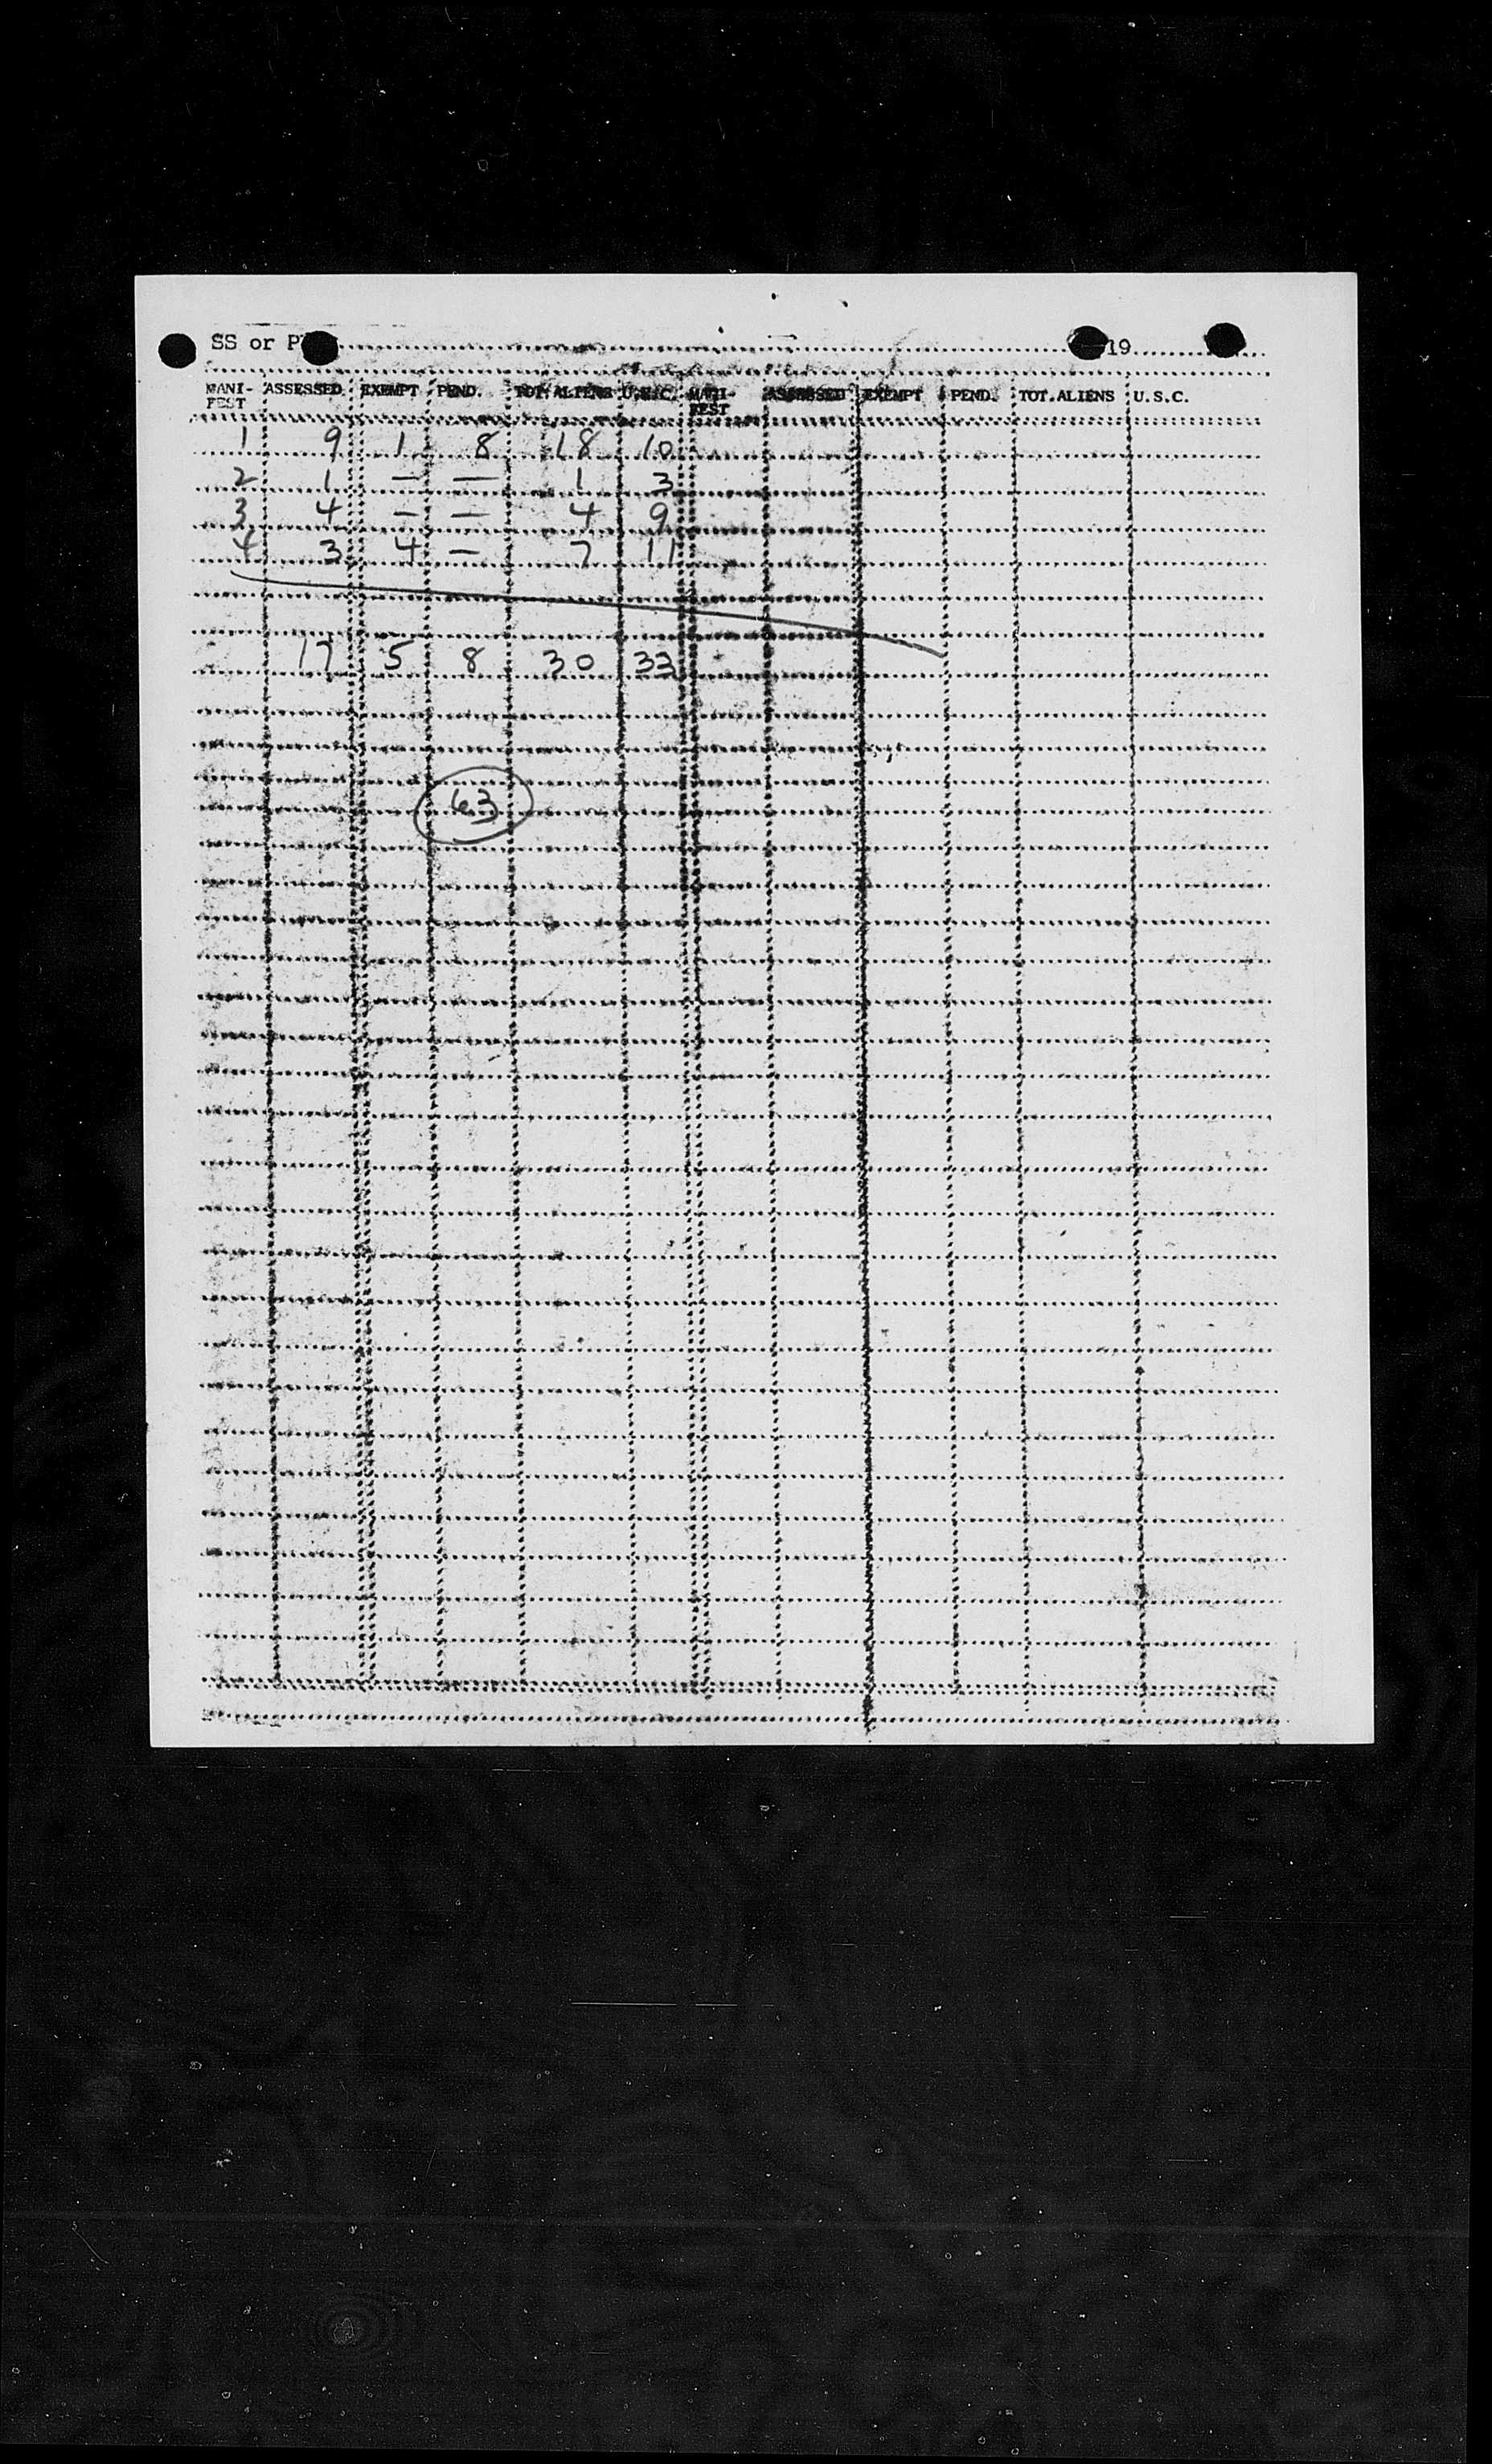 SS or P 19
MANI- ASSESSED EXEMPT PEND. TOT. ALIENS U.S.C. MANI- ASSESSED EXEMPT PEND. TOT.ALIENS U.S.C.
FEST FEST
1 9 1 8 18 10
2 1 — — 1 3
3 4 — — 4 9
4 3 4 — 7 11
17 5 8 30 33
63